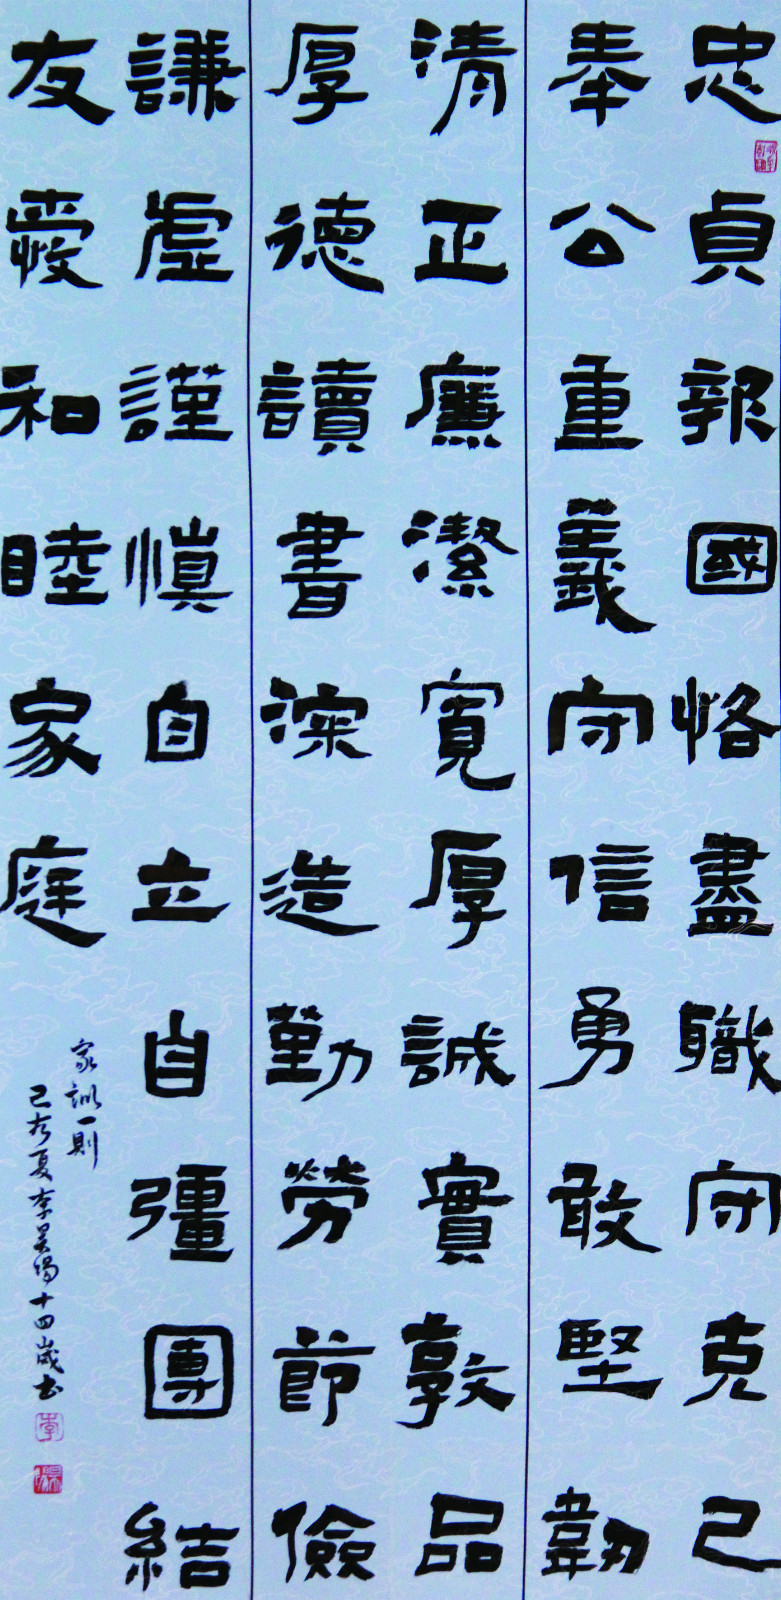 忠貞報國恪盡職守克己
奉公重義守信勇敢堅韌
清正廉潔寬厚誠實敦品
厚德讀書深造勤勞節儉
謙虛謹慎自立自彊團結
友愛和睦家庭
家訓一則
己亥夏李昊陽十四歲書
李